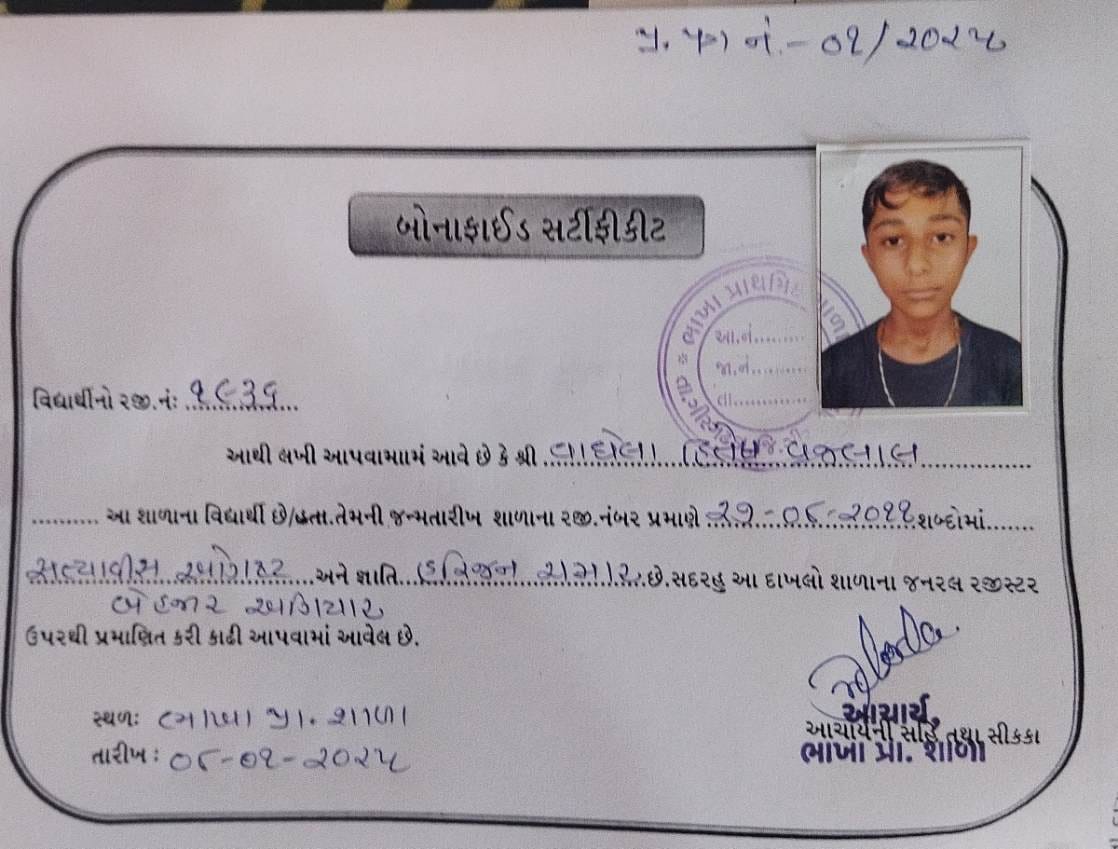 પ્ર. પ્રા નં. - ૦૧/૨૦૨૫
બોનાફાઈડ સર્ટીફીકીટ
ભાખા પ્રાથમિક શાળા
આ.નં..........
જા.નં..........
તા..............
વિદ્યાર્થીનો રજી.નંઃ ૧૯૩૬
આથી લખી આપવામામં આવે છે કે શ્રી વાઘેલા હિતેષ વ્રજલાલ
........... આ શાળાના વિદ્યાર્થી છે/હતા.તેમની જન્મતારીખ શાળાના રજી.નંબર પ્રમાણે ૨૭-૦૮-૨૦૧૧ શબ્દોમાં.......
સત્યાવીસ ઓગષ્ટ અને જ્ઞાતિ હરિજન ચમાર છે.સદરહુ આ દાખલો શાળાના જનરલ રજીસ્ટર
બે હજાર અગિયાર
ઉપરથી પ્રમાણિત કરી કાઢી આપવામાં આવેલ છે.
સ્થળઃ ભાખા પ્રા. શાળા
તારીખ : ૦૮-૦૧-૨૦૨૫
આચાર્ય,
આચાર્યની સહિ તથા સીકકા
ભાખા પ્રા. શાળા